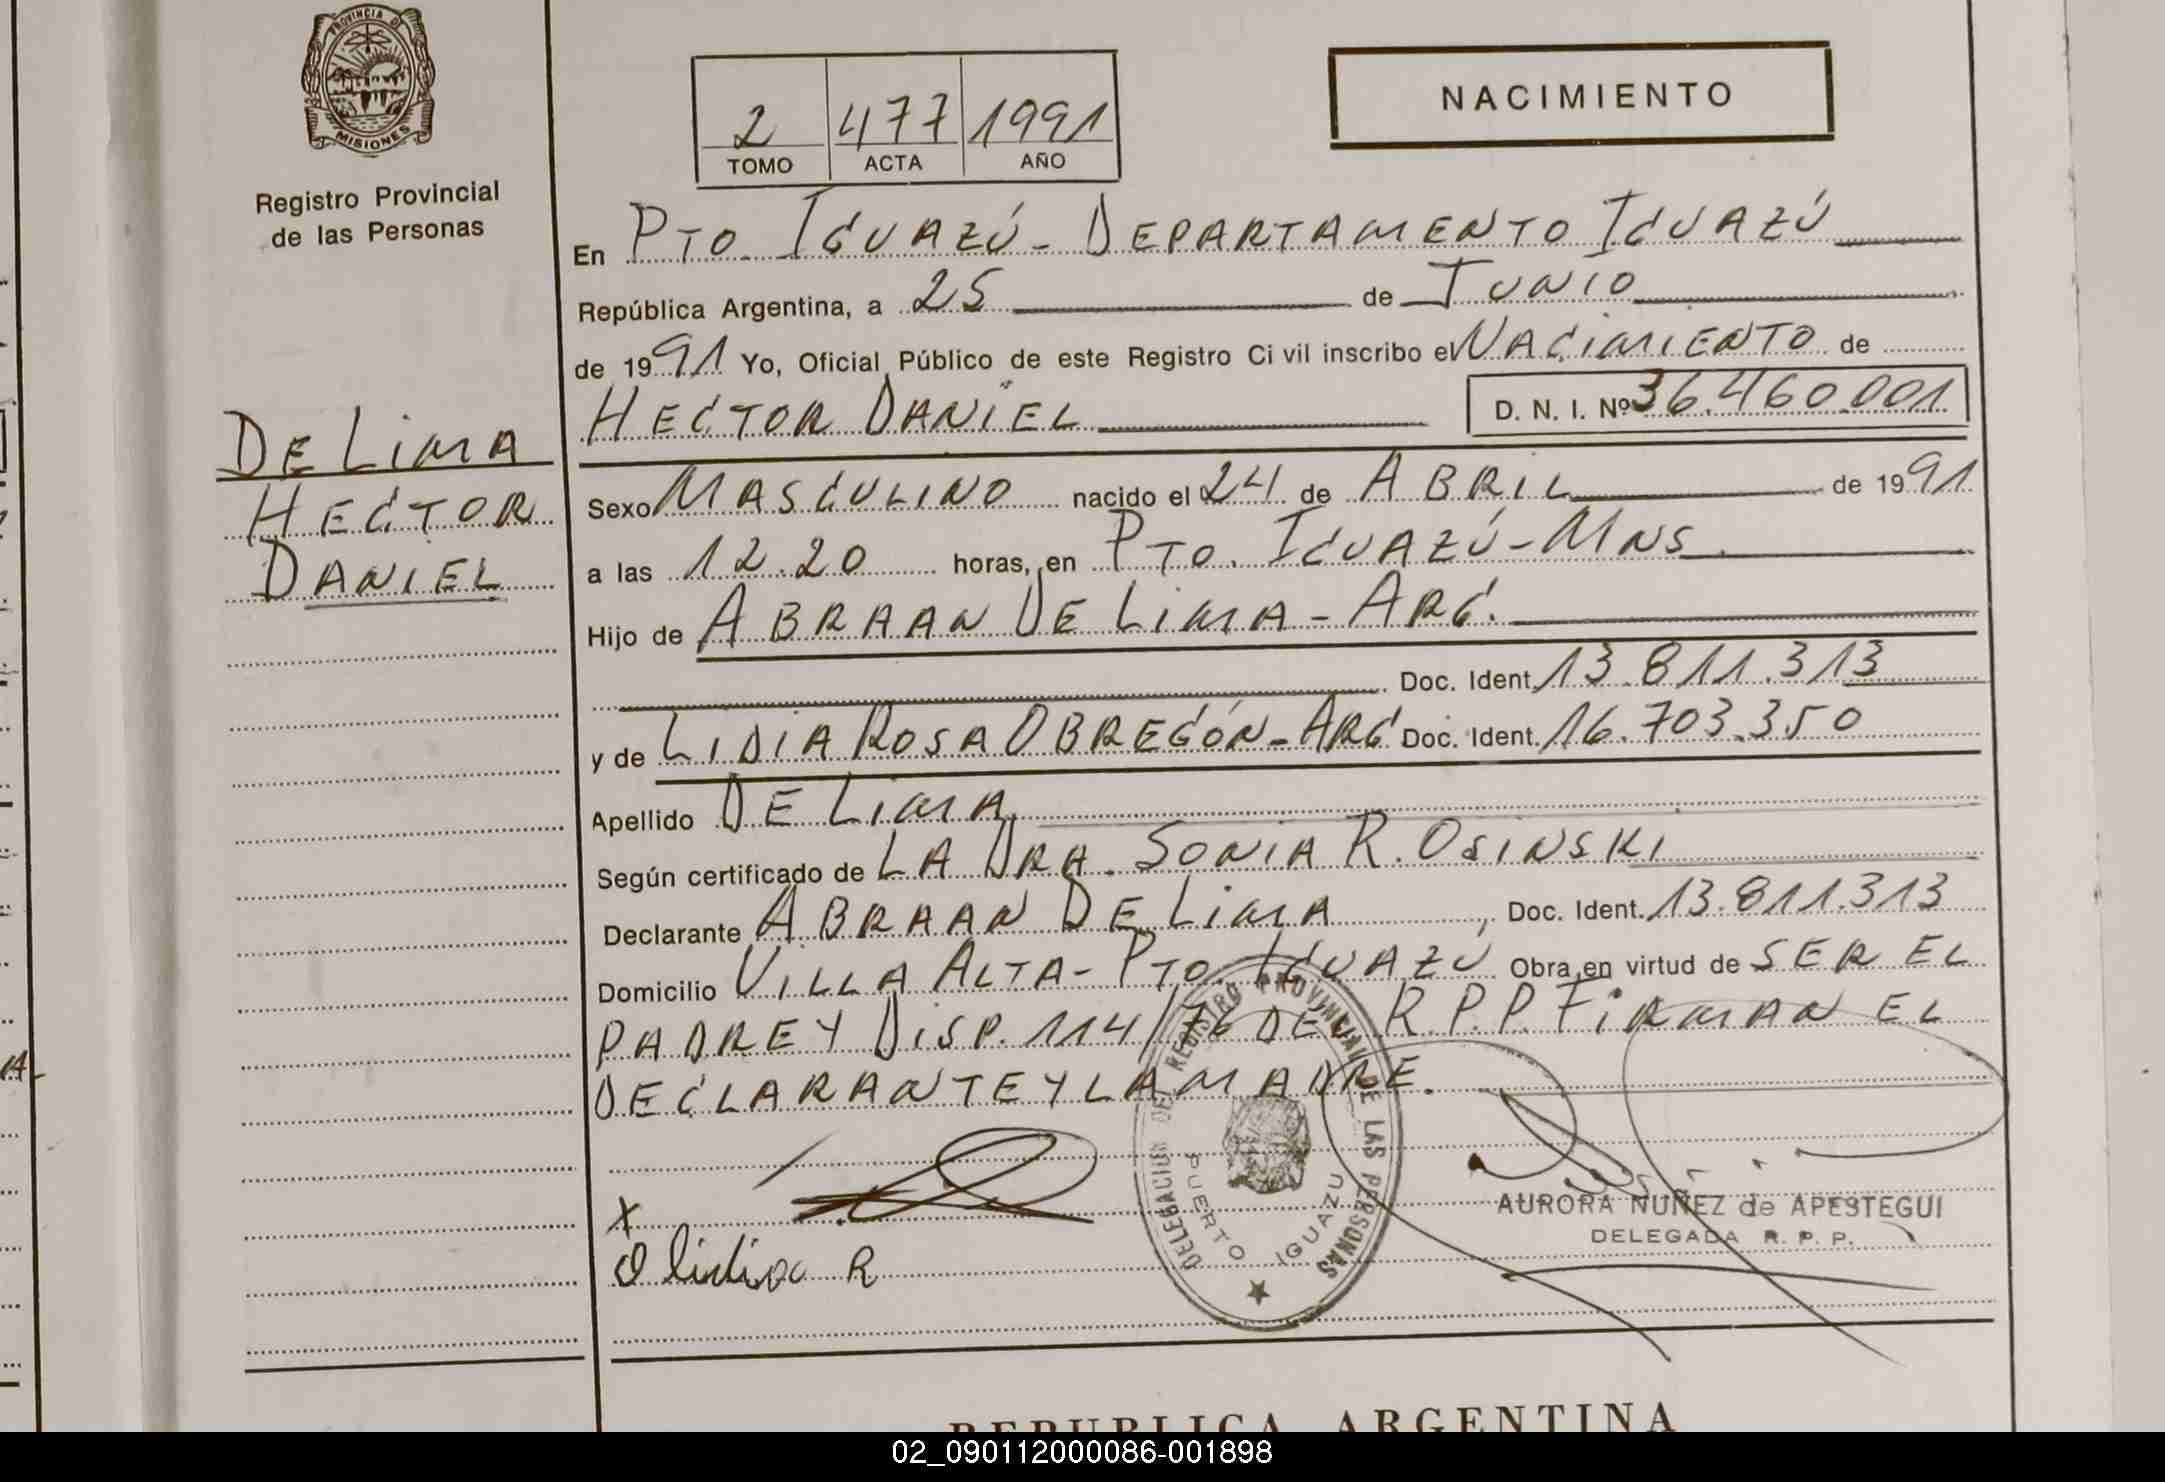 PROVINCIA DE
MISIONES
Registro Provincial
de las Personas
DE LIMA
HECTOR
DANIEL
2 477 1991
TOMO ACTA AÑO
NACIMIENTO
En PTO. IGUAZÚ - DEPARTAMENTO IGUAZÚ
República Argentina, a 25 de JUNIO
de 1991 Yo, Oficial Público de este Registro Ci vil inscribo el NACIMIENTO de
HECTOR DANIEL D. N. I. Nº 36.460.001
Sexo MASCULINO nacido el 24 de ABRIL de 1991
a las 12.20 horas, en PTO. IGUAZÚ - MNS.
Hijo de ABRAAN DE LIMA - ARG.
Doc. Ident. 13.811.313
y de LIDIA ROSA OBREGÓN - ARG Doc. Ident. 16.703.350
Apellido DE LIMA
Según certificado de LA DRA. SONIA R. OSINSKI
Declarante ABRAAN DE LIMA, Doc. Ident. 13.811.313
Domicilio VILLA ALTA - PTO. IGUAZÚ Obra en virtud de SER EL
PADRE Y DISP. 114/76 DEL R.P.P. FIRMAN EL
DECLARANTE Y LA MADRE.
DELEGACION DEL REGISTRO PROVINCIAL DE LAS PERSONAS
PUERTO IGUAZU
X
AURORA NUÑEZ de APESTEGUI
DELEGADA R. P. P.
REPUBLICA ARGENTINA
02_090112000086-001898